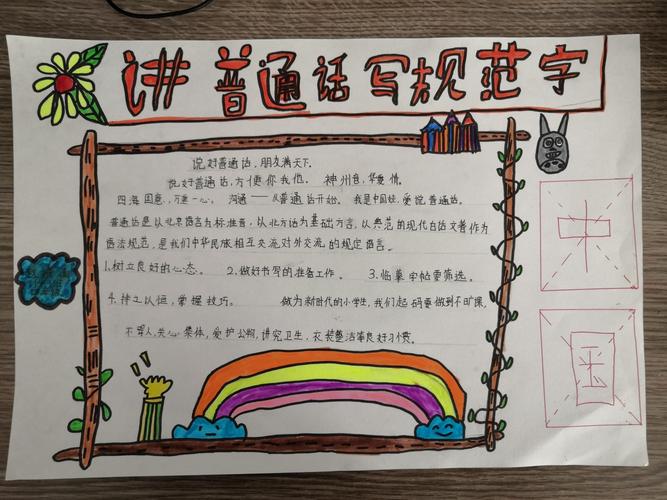 讲普通话写规范字
说好普通话，朋友满天下。
说好普通话，方便你我他。 神州音，华夏情。
四海同意，万连一心， 沟通——从普通话开始。 我是中国娃，爱说普通话。
普通话是以北京语言为标准音，以北方话为基础方言，以典范的现代白话文著作为
语法规范，是我们中华民族相互交流对外交流的规定语言。
1.树立良好的心态。 2.做好书写的准备工作。 3.临摹字帖要筛选。
4.持之以恒，掌握技巧。 做为新时代的小学生，我们起码要做到不旷课，
不骂人，关心集体，爱护公物，讲究卫生，衣装整洁等良好习惯。
中
国